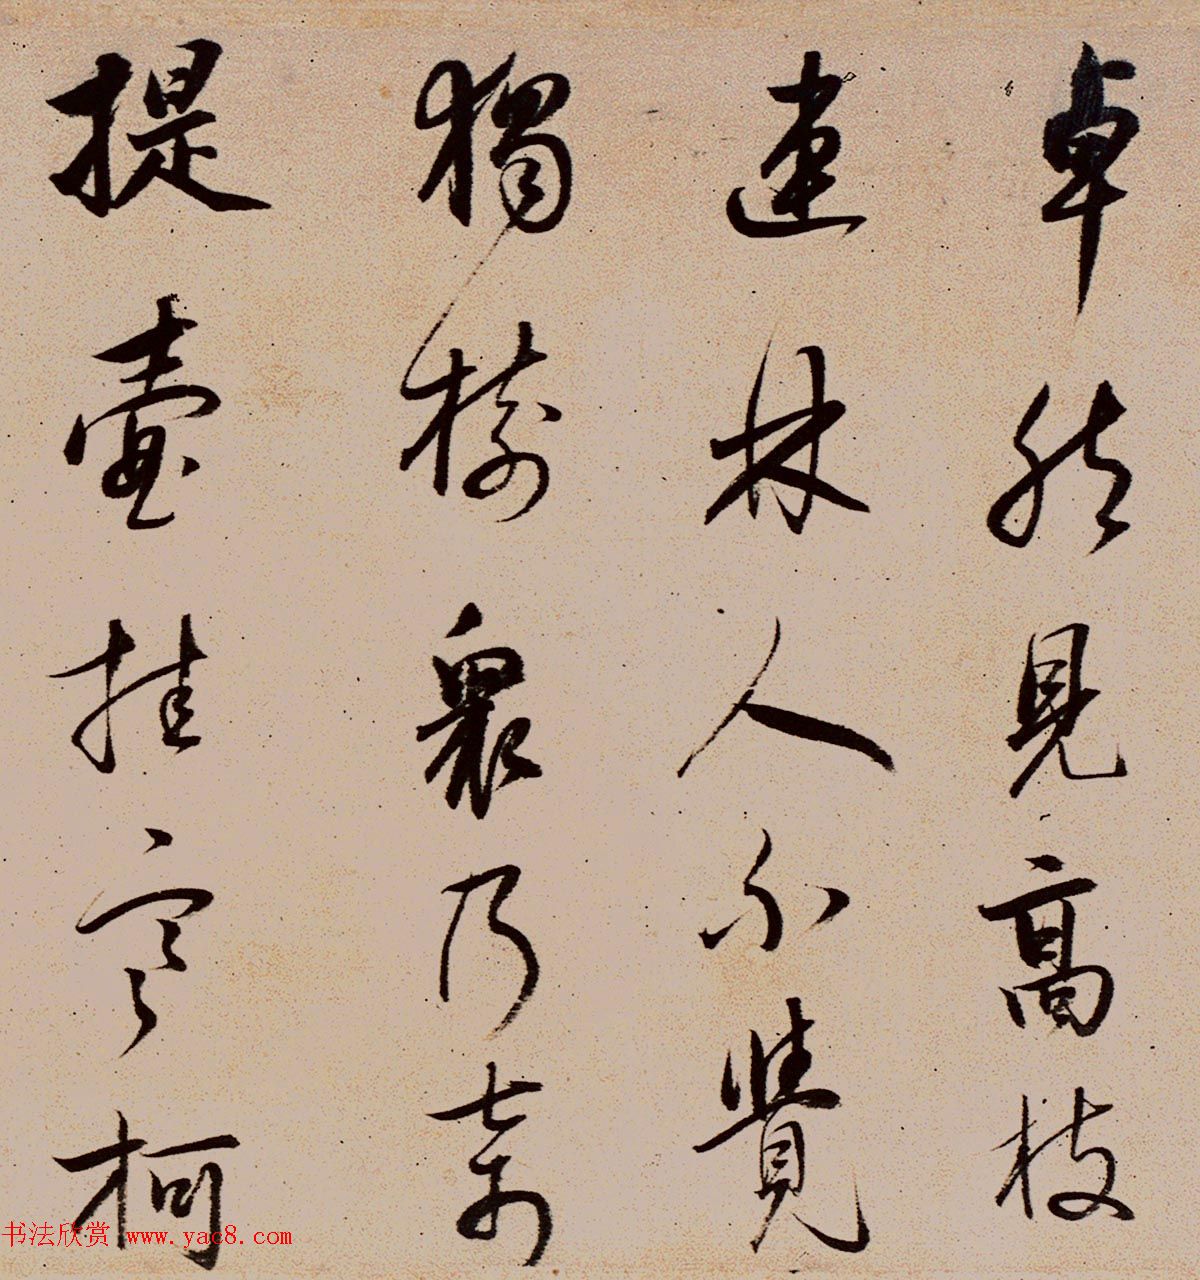 卓然見高枝
連林人不覺
獨樹衆乃奇
提壺挂寒柯
书法欣赏 www.yac8.com